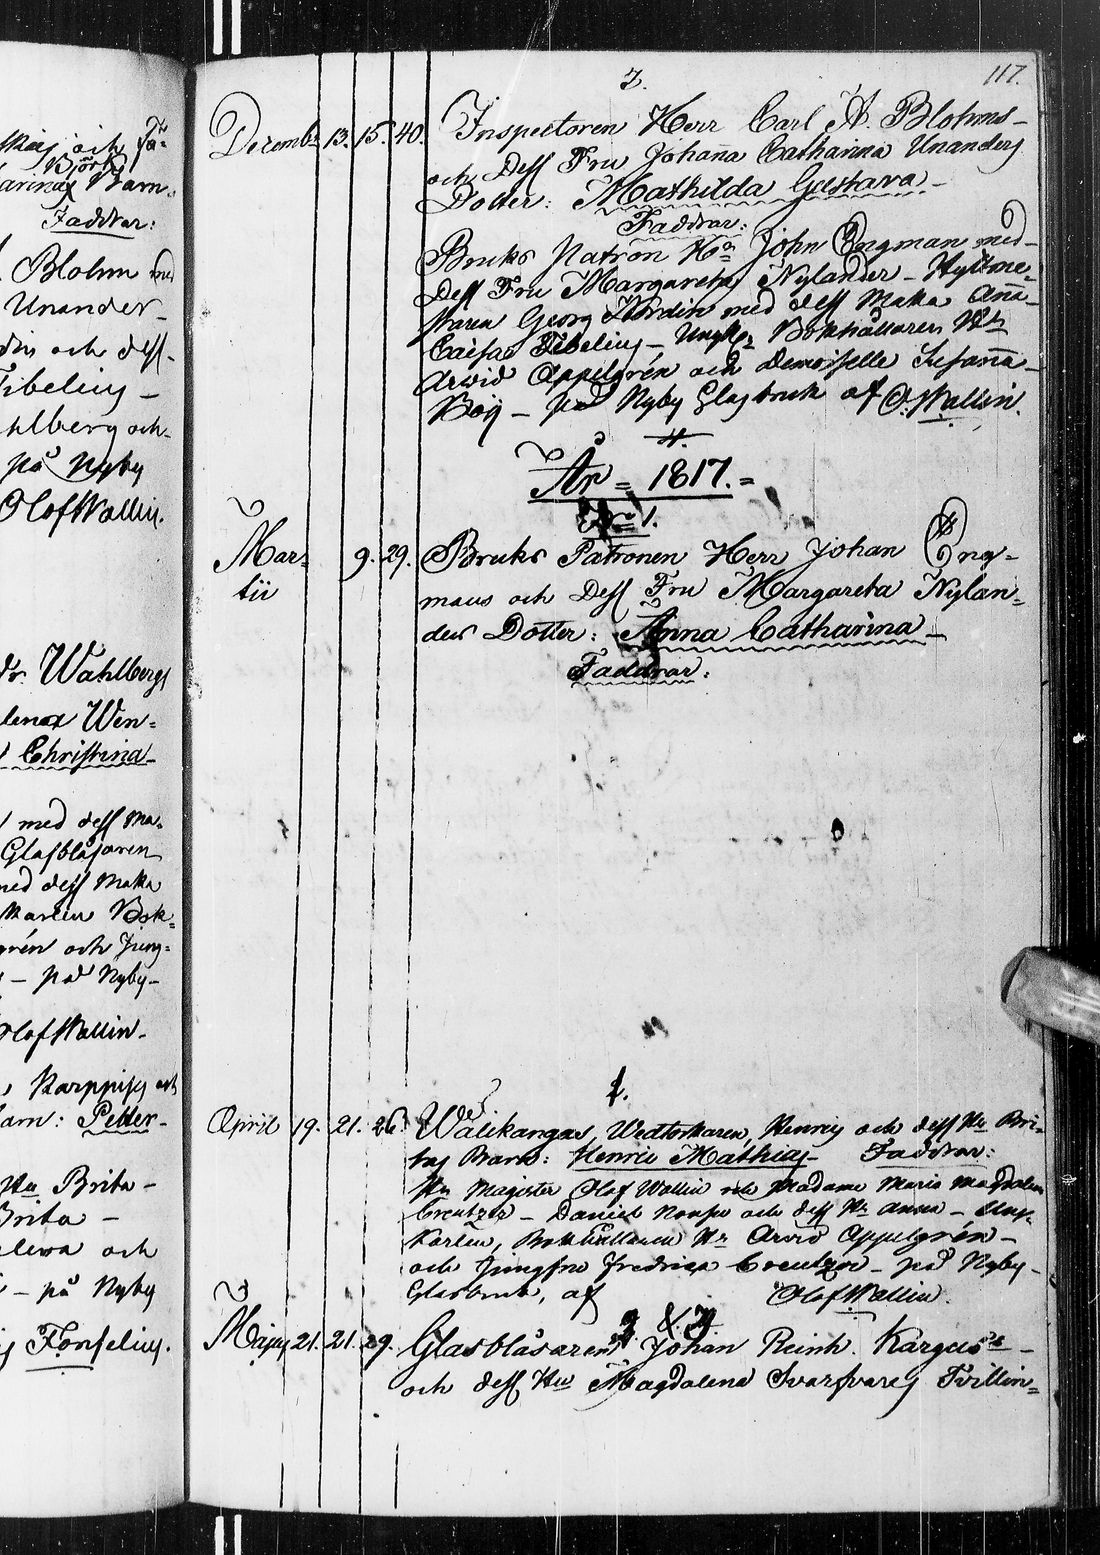 och Fa=
Björk
Barn.
Faddrar:
Blohm med
Unander
och dess
Tibelius
ahlberg och
på Nyby
Olof Wallin.
Wahlbergs
lenas Wen=
Christina
med dess Ma=
Glasblåsaren
med dess Maka
karlen Bok=
grén och Jung=
– på Nyby –
Olof Wallin –
Karppisy och
Barn: Petter –
Hu Brita –
Brita –
och
– på Nyby
Forselius.
117.
7.
Decembr 13. 15. 40. Inspectoren Herr Carl A. Blohms –
och Dess Fru Johaña Catharina Unanders
Dotter: Mathilda Gustava –
Faddrar:
Bruks Patron Hr John Engman med –
Dess Fru Margareta Nylander – Hyttme=
staren Georg Nordin med dess Maka Aña
Caisa Tibelius – Ungk. Bokhållaren Hr
Arvid Appelgrén och Demoiselle Susaña
Böy – på Nyby Glasbruk af O. Wallin.
År = 1817. =
1.
Mar= 9. 29. Bruks Patronen Herr Johan Eng=
tii mans och Dess Fru Margareta Nylan=
ders Dotter: Anna Catharina –
Faddrar:
1.
April 19. 21. 26. Wälikangas, Henric och dess Hu Bri=
tas Barn: Henric Mathias – Faddrar:
Hr Magister Olof Wallin och Madame Maria Magdalena
Creutzer – Daniel och dess Hu Anna – Ung=
Karlen, Bokhållaren Hr Arvid Appelgrén –
och Jungfru Fredrica Creutzer – på Nyby –
Glasbruk, af Olof Wallin.
2 & 3
Majus 21. 21. 29. Glasblåsaren Johan Reinh. Kargus
och dess Hu Magdalena Svarfvars Tvillin=